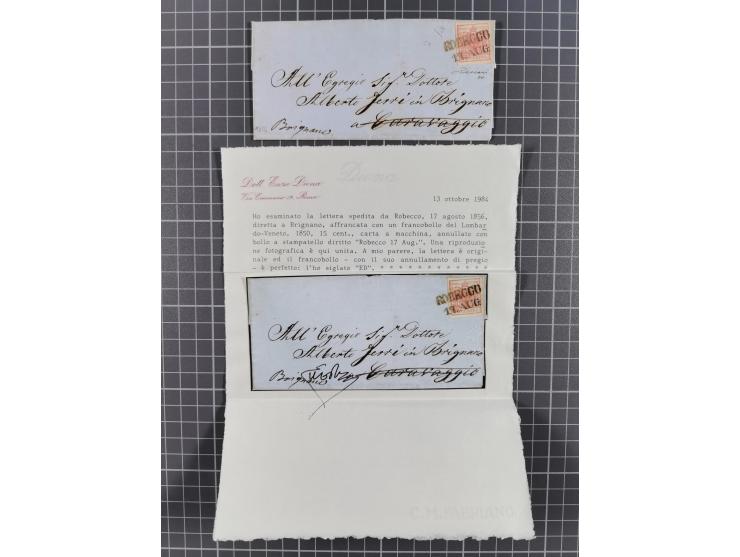 ROBECCO
17. AUG
All' Egregio Sig.r Dottore
Alberto Ferri in Brignano
Brignano a Caravaggio
Diena
Dott. Enzo Diena
Roma
13 ottobre 1984
Ho esaminato la lettera spedita da Robecco, 17 agosto 1856,
diretta a Brignano, affrancata con un francobollo del Lombar
do-Veneto, 1850, 15 cent., carta a macchina, annullato con
bollo a stampatello diritto "Robecco 17 Aug.". Una riproduzio
ne fotografica è qui unita. A mio parere, la lettera è orig-
inale ed il francobollo - con il suo annullamento di pregio
- è perfetto: l'ho siglato "ED". * * * * * * * * * * * *
ROBECCO
17. AUG
All' Egregio Sig.r Dottore
Alberto Ferri in Brignano
Brignano Caravaggio
C.M.FABRIANO